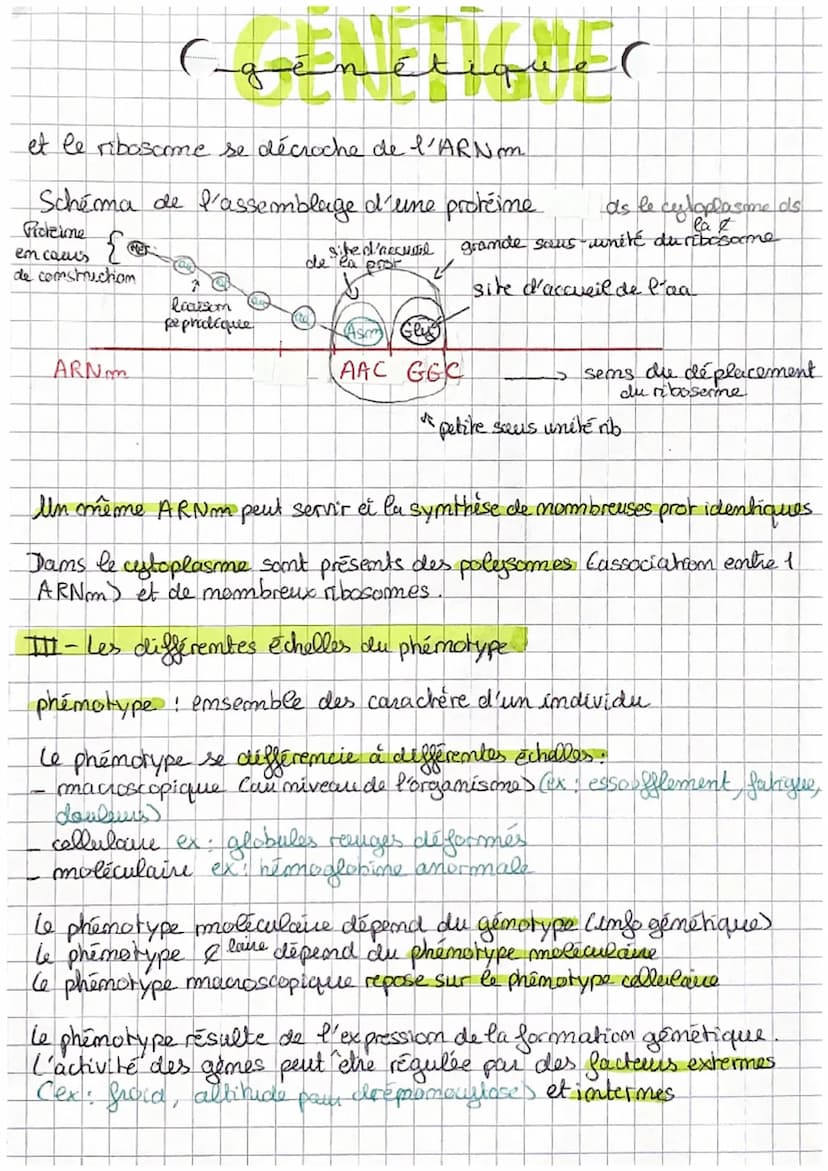 GÉNÉTIQUE
génétique
et le ribosome se décroche de l'ARNm
Schéma de l'assemblage d'une protéine ds le cytoplasme ds la ¢
Protéine en cours de construction
Met
aa
aa
aa
aa
liaison peptidique
site d'accueil de la prot
grande sous-unité du ribosome
site d'accueil de l'aa
Asm
Gly
ARNm
AAC GGC
sens du déplacement du ribosome
petite sous unité rib
Un même ARNm peut servir et la synthèse de nombreuses prot identiques
Dans le cytoplasme sont présents des polysomes (association entre 1
ARNm) et de nombreux ribosomes.
III - Les différentes échelles du phénotype
phénotype : ensemble des caractère d'un individu
Le phénotype se différencie à différentes échelles :
- macroscopique (au niveau de l'organisme) (ex : essoufflement, fatigue,
douleurs)
- cellulaire ex : globules rouges déformés
- moléculaire ex : hémoglobine anormale
Le phénotype moléculaire dépend du génotype (info génétique)
Le phénotype ¢ laire dépend du phénotype moléculaire
Le phénotype macroscopique repose sur le phénotype cellulaire
Le phénotype résulte de l'expression de la formation génétique.
L'activité des gènes peut être régulée par des facteurs externes
(ex : froid, altitude pour drépanocytose) et internes